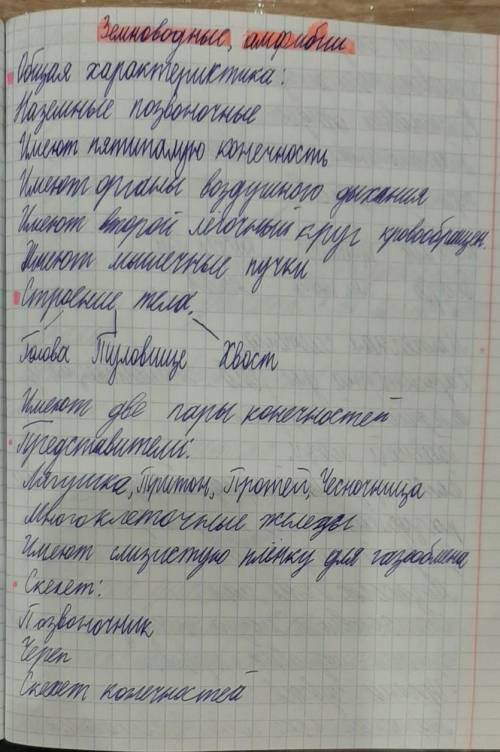 Земноводные, амфибии
Общая характериктика:
Наземные позвоночные
Имеют пятипалую конечность
Имеют органы воздушного дыхания
Имеют второй лёгочный круг кровообращен.
Имеют мышечные пучки
Строение тела.
Голова Туловище Хвост
Имеют две пары конечностей
Представители:
Лягушка, Тритон, Протей, Чесночница
Многоклеточные железы
Имеют слизистую плёнку для газообмена
Скелет:
Позвоночник
Череп
Скелет конечностей